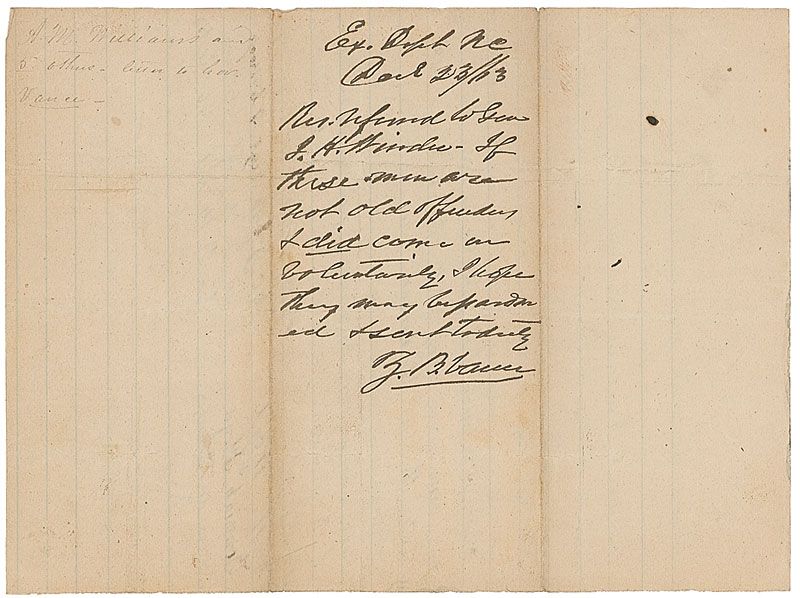 A. M. Williams & and
5 others - letter to Gov.
Vance -
Ex. Dept NC
Dec 23/63
Res. referred to Gen
J. H. Winder - If
these men are
not old offenders
& did come in
voluntarily, I hope
they may be pardon
ed & sent to duty
Z. B. Vance